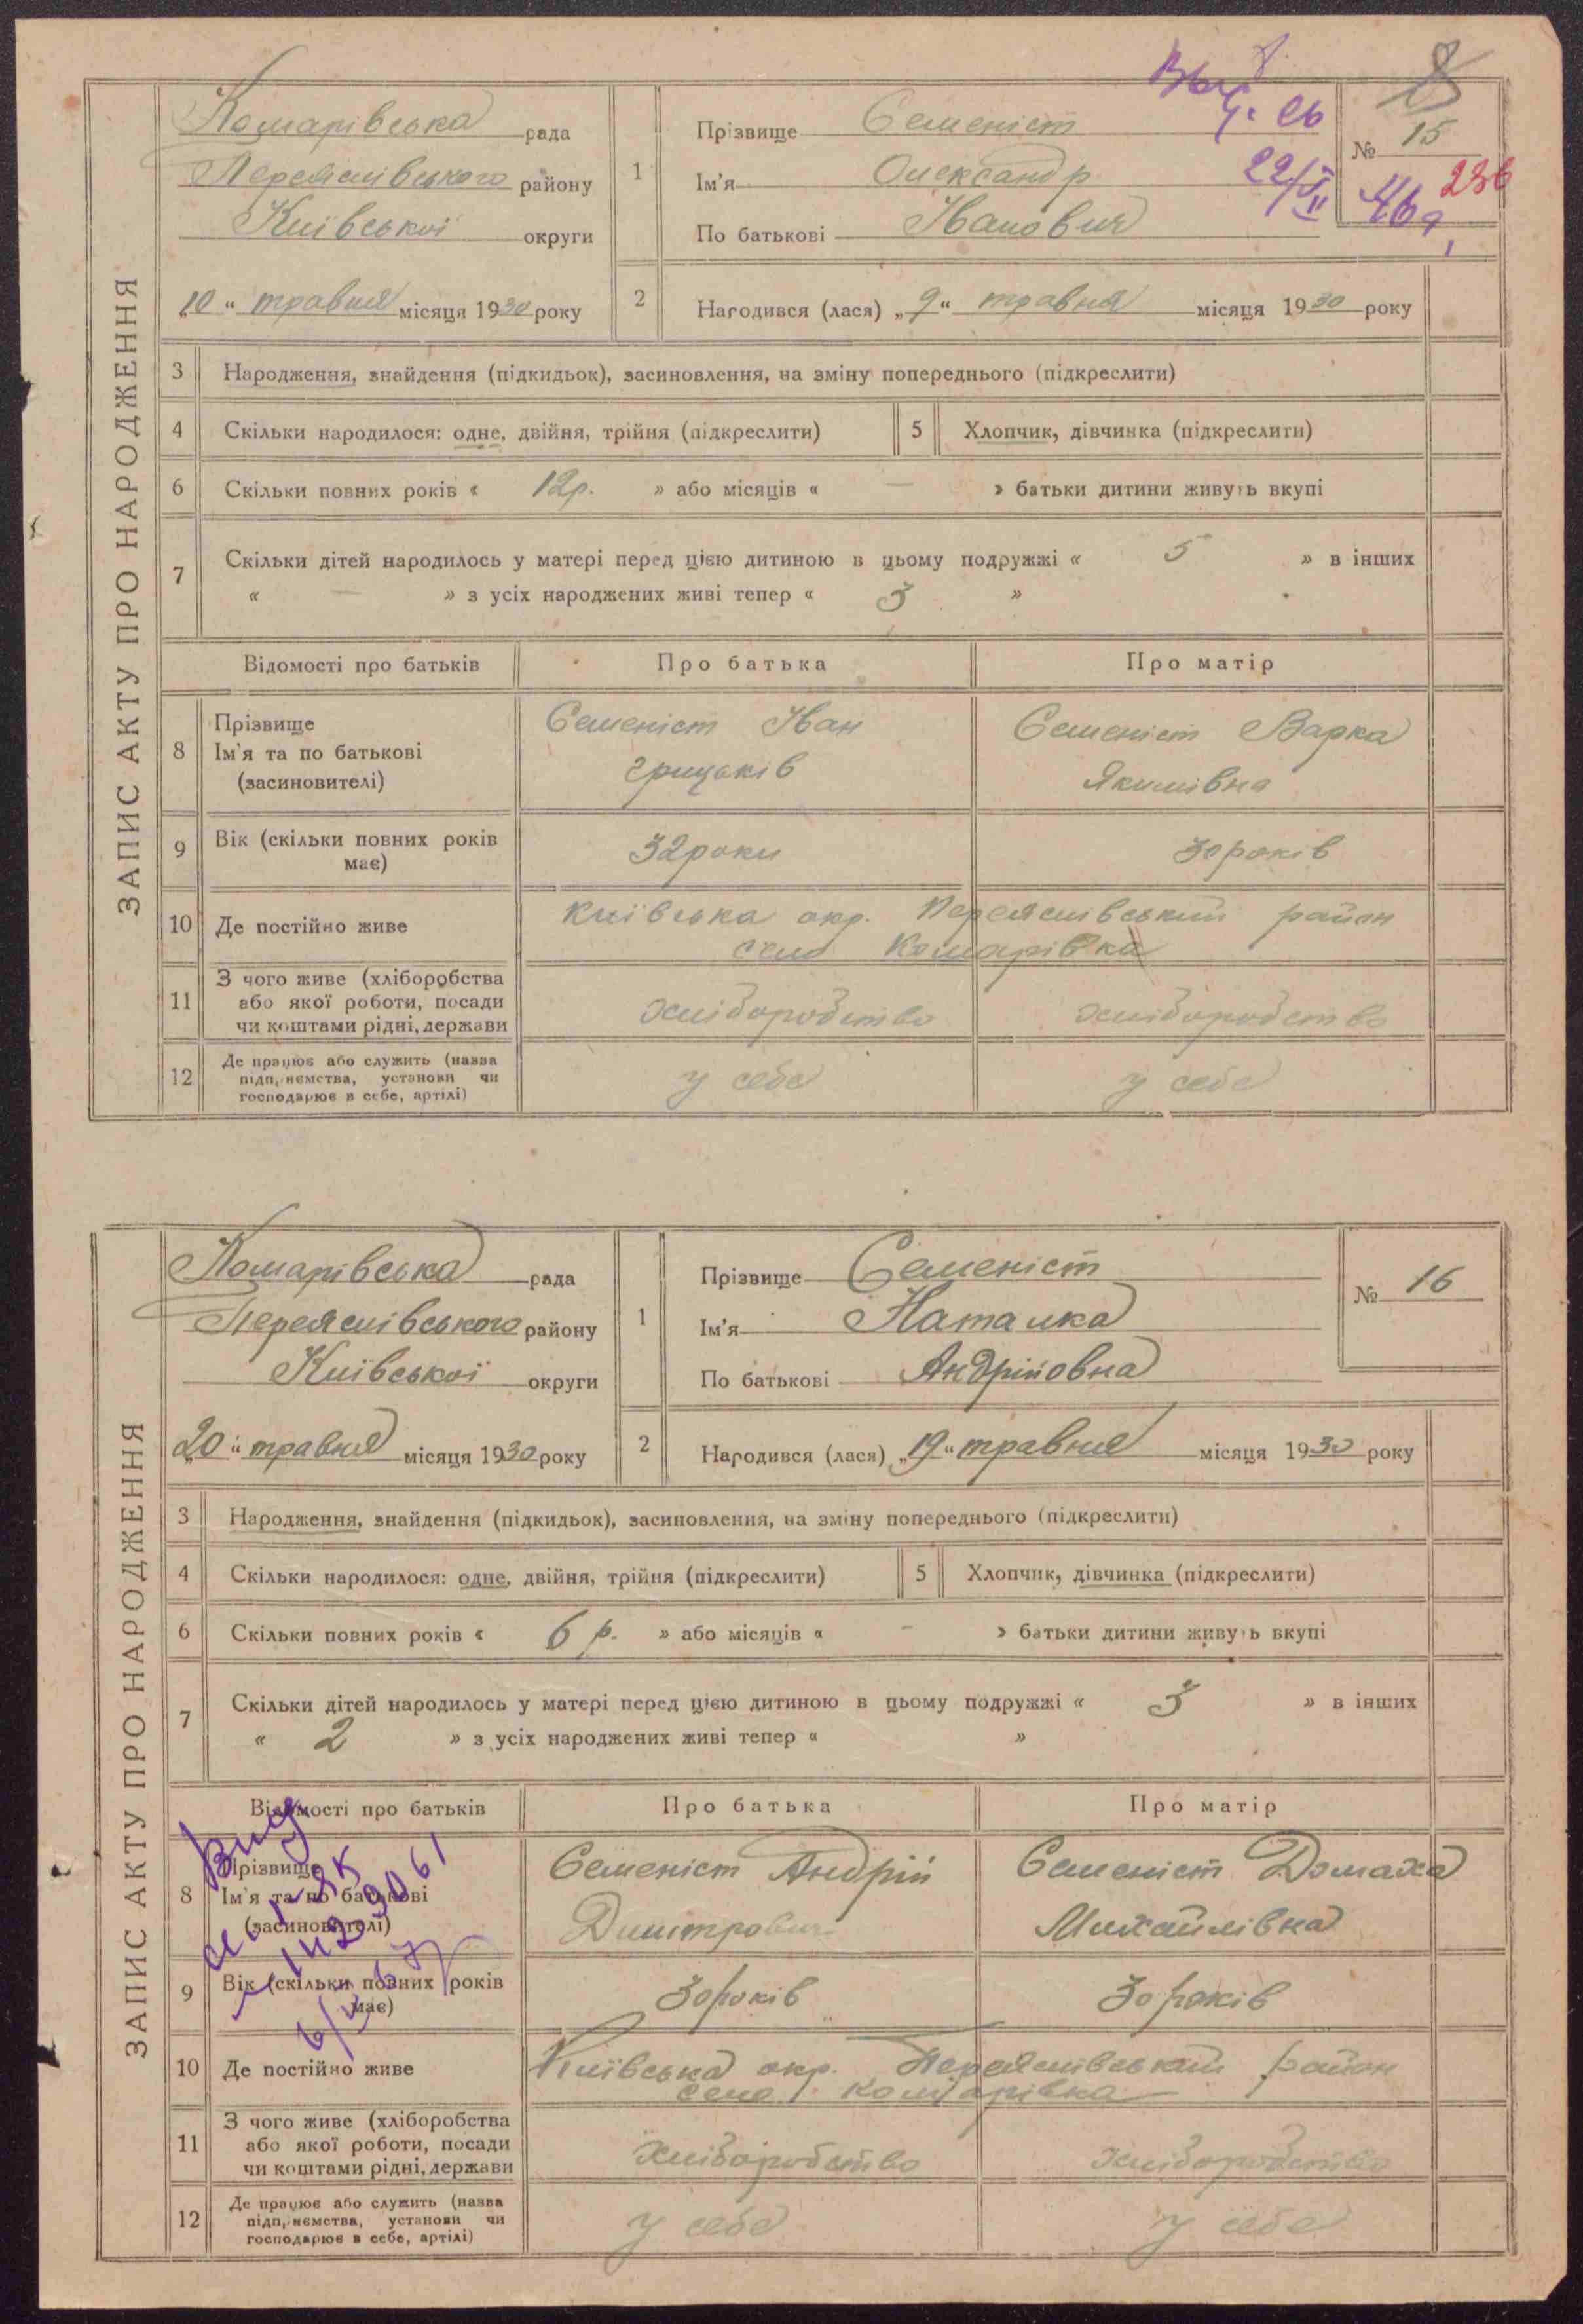 ЗАПИС АКТУ ПРО НАРОДЖЕННЯ
Комарівська рада
Переяслівського району
Київської округи
„10“ травня місяця 1930 року
1 Прізвище Семеніст
Ім'я Олександр
По батькові Іванович
№ 15
236
2 Народився (лася) „9“ травня місяця 1930 року
3 Народження, знайдення (підкидьок), засиновлення, на зміну попереднього (підкреслити)
4 Скільки народилося: одне, двійня, трійня (підкреслити) 5 Хлопчик, дівчинка (підкреслити)
6 Скільки повних років « 12р. » або місяців « — » батьки дитини живуть вкупі
7 Скільки дітей народилось у матері перед цією дитиною в цьому подружжі « 5 » в інших
« — » з усіх народжених живі тепер « 3 »
Відомості про батьків Про батька Про матір
8 Прізвище
Ім'я та по батькові
(засиновителі)
Семеніст Іван
Грицьків
Семеніст Варка
Якимівна
9 Вік (скільки повних років
має)
32 роки 30 років
10 Де постійно живе
Київська окр. Переяслівський район
село Комарівка
11 З чого живе (хліборобства
або якої роботи, посади
чи коштами рідні, держави
хліборобство хліборобство
12 Де працює або служить (назва
підприємства, установи чи
господарює в себе, артілі)
у себе у себе
ЗАПИС АКТУ ПРО НАРОДЖЕННЯ
Комарівська рада
Переяслівського району
Київської округи
„20“ травня місяця 1930 року
1 Прізвище Семеніст
Ім'я Наталка
По батькові Андріповна
№ 16
2 Народився (лася) „19“ травня місяця 1930 року
3 Народження, знайдення (підкидьок), засиновлення, на зміну попереднього (підкреслити)
4 Скільки народилося: одне, двійня, трійня (підкреслити) 5 Хлопчик, дівчинка (підкреслити)
6 Скільки повних років « 6 р. » або місяців « - » батьки дитини живуть вкупі
7 Скільки дітей народилось у матері перед цією дитиною в цьому подружжі « 3 » в інших
« 2 » з усіх народжених живі тепер « »
Відомості про батьків Про батька Про матір
8 Прізвище
Ім'я та по батькові
(засиновителі)
Семеніст Андрій
Дмитрович
Семеніст Домаха
Михайлівна
9 Вік (скільки повних років
має)
30 років 30 років
10 Де постійно живе
Київська окр. Переяслівський район
село Комарівка
11 З чого живе (хліборобства
або якої роботи, посади
чи коштами рідні, держави
хліборобство хліборобство
12 Де працює або служить (назва
підприємства, установи чи
господарює в себе, артілі)
у себе у себе